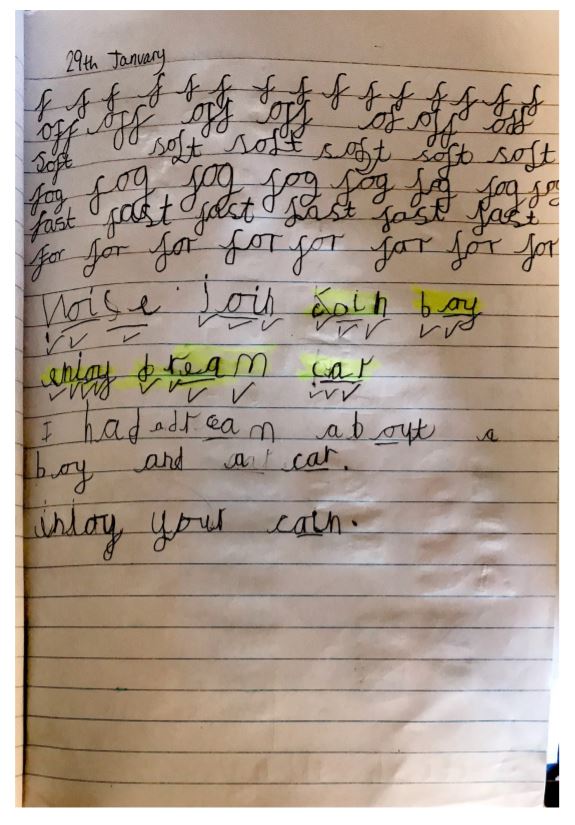 29th January
f f f f f f f f f f f f f f f
off off off off of off off
soft soft soft soft soft soft
fog fog fog fog fog fog fog fog
fast fast fast fast fast fast
for for for for for for for for
Noise join coin boy
enjoy dream car
I had adream about a
boy and a car.
inloy your coin.